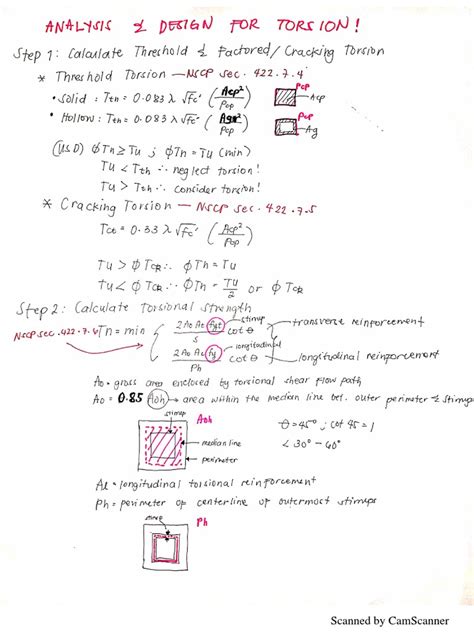 ANALYSIS & DESIGN FOR TORSION!
Step 1: Calculate Threshold & Factored/Cracking Torsion
* Threshold Torsion — NSCP sec. 422.7.4
• Solid : Tth = 0.083 λ √fc' (Acp²/Pcp)
Pcp
Acp
• Hollow : Tth = 0.083 λ √fc' (Ag²/Pcp)
Pcp
Ag
(USD) ϕTn ≥ Tu ; ϕTn = Tu (min)
Tu < Tth ∴ neglect torsion!
Tu > Tth ∴ consider torsion!
* Cracking Torsion — NSCP sec. 422.7.5
Tcr = 0.33 λ √fc' (Acp²/Pcp)
Tu > ϕTCR ∴ ϕTn = Tu
Tu < ϕTCR ∴ ϕTn = Tu/2 or ϕTCR
Step 2: Calculate Torsional Strength
NSCP sec. 422.7.6
Tn = min
2AoAt fyt / s cot θ
stirrup
transverse reinforcement
2AoAl fy / Ph cot θ
longitudinal
longitudinal reinforcement
Ao - gross area enclosed by torsional shear flow path
Ao = 0.85 Aoh → area within the median line bet. outer perimeter & stirrups
stirrup
Aoh
median line
perimeter
θ = 45° ; cot 45 = 1
∠ 30° - 60°
Al = longitudinal torsional reinforcement
Ph = perimeter of centerline of outermost stirrups
stirrup
Ph
Scanned by CamScanner